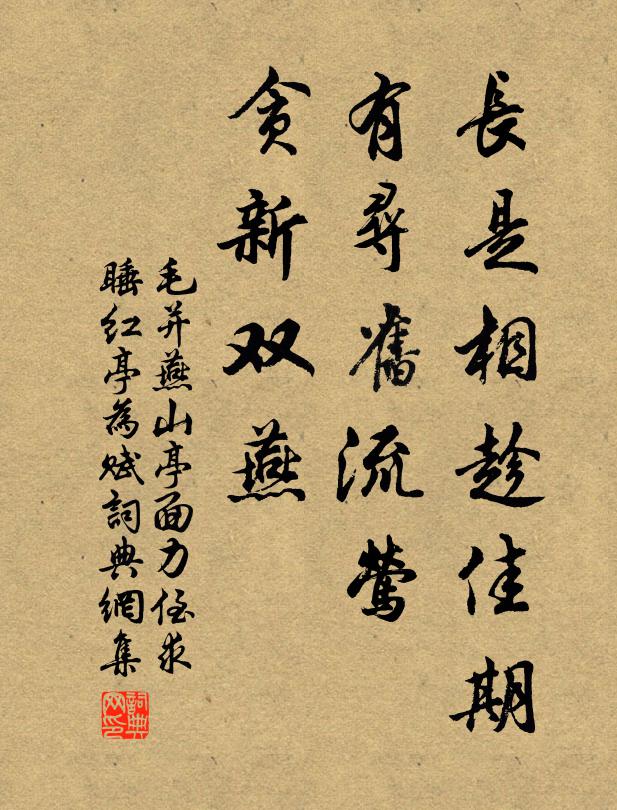 長是相趁佳期
有尋舊流鶯
貪新双燕
毛并燕山亭面力侄求
睡红亭為赋詞典網集
詞典网印